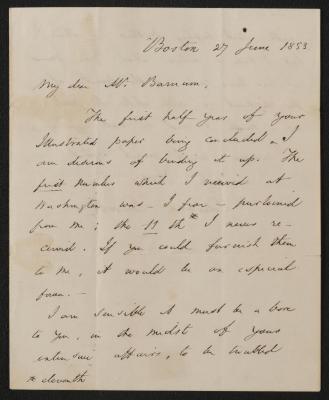 Boston 27 June 1853
My dear Mr. Barnum,
The first half year of your
Illustrated paper being concluded, I
am desirous of binding it up. The
first number which I received at
Washington was - I fear - purloined
from me; the 11th * I never re-
ceived. If you could furnish them
to me, it would be an especial
favor. -
I am sensible it must be a bore
to you, in the midst of your
extensive affairs, to be troubled
* eleventh